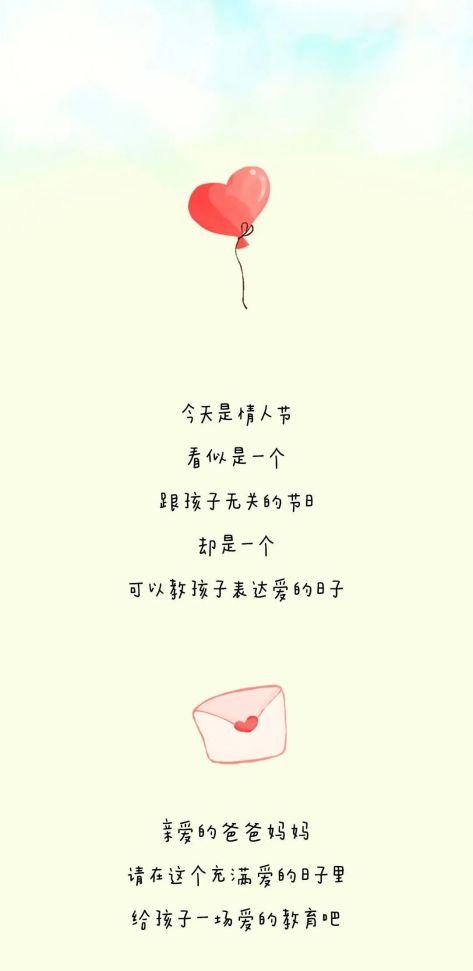 今天是情人节
看似是一个
跟孩子无关的节日
却是一个
可以教孩子表达爱的日子
亲爱的爸爸妈妈
请在这个充满爱的日子里
给孩子一场爱的教育吧